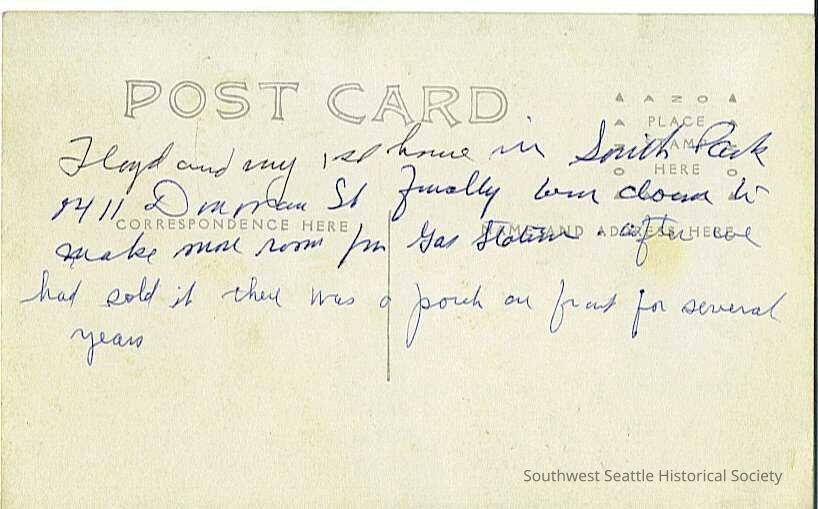 POST CARD
AZO
PLACE
STAMP
HERE
Floyd and my 1st house in South Park
8411 Donovan St finally torn down to
CORRESPONDENCE HERE
NAME AND ADDRESS HERE
make more room for Gas Station - after we
had sold it there was a porch on front for several
years
Southwest Seattle Historical Society